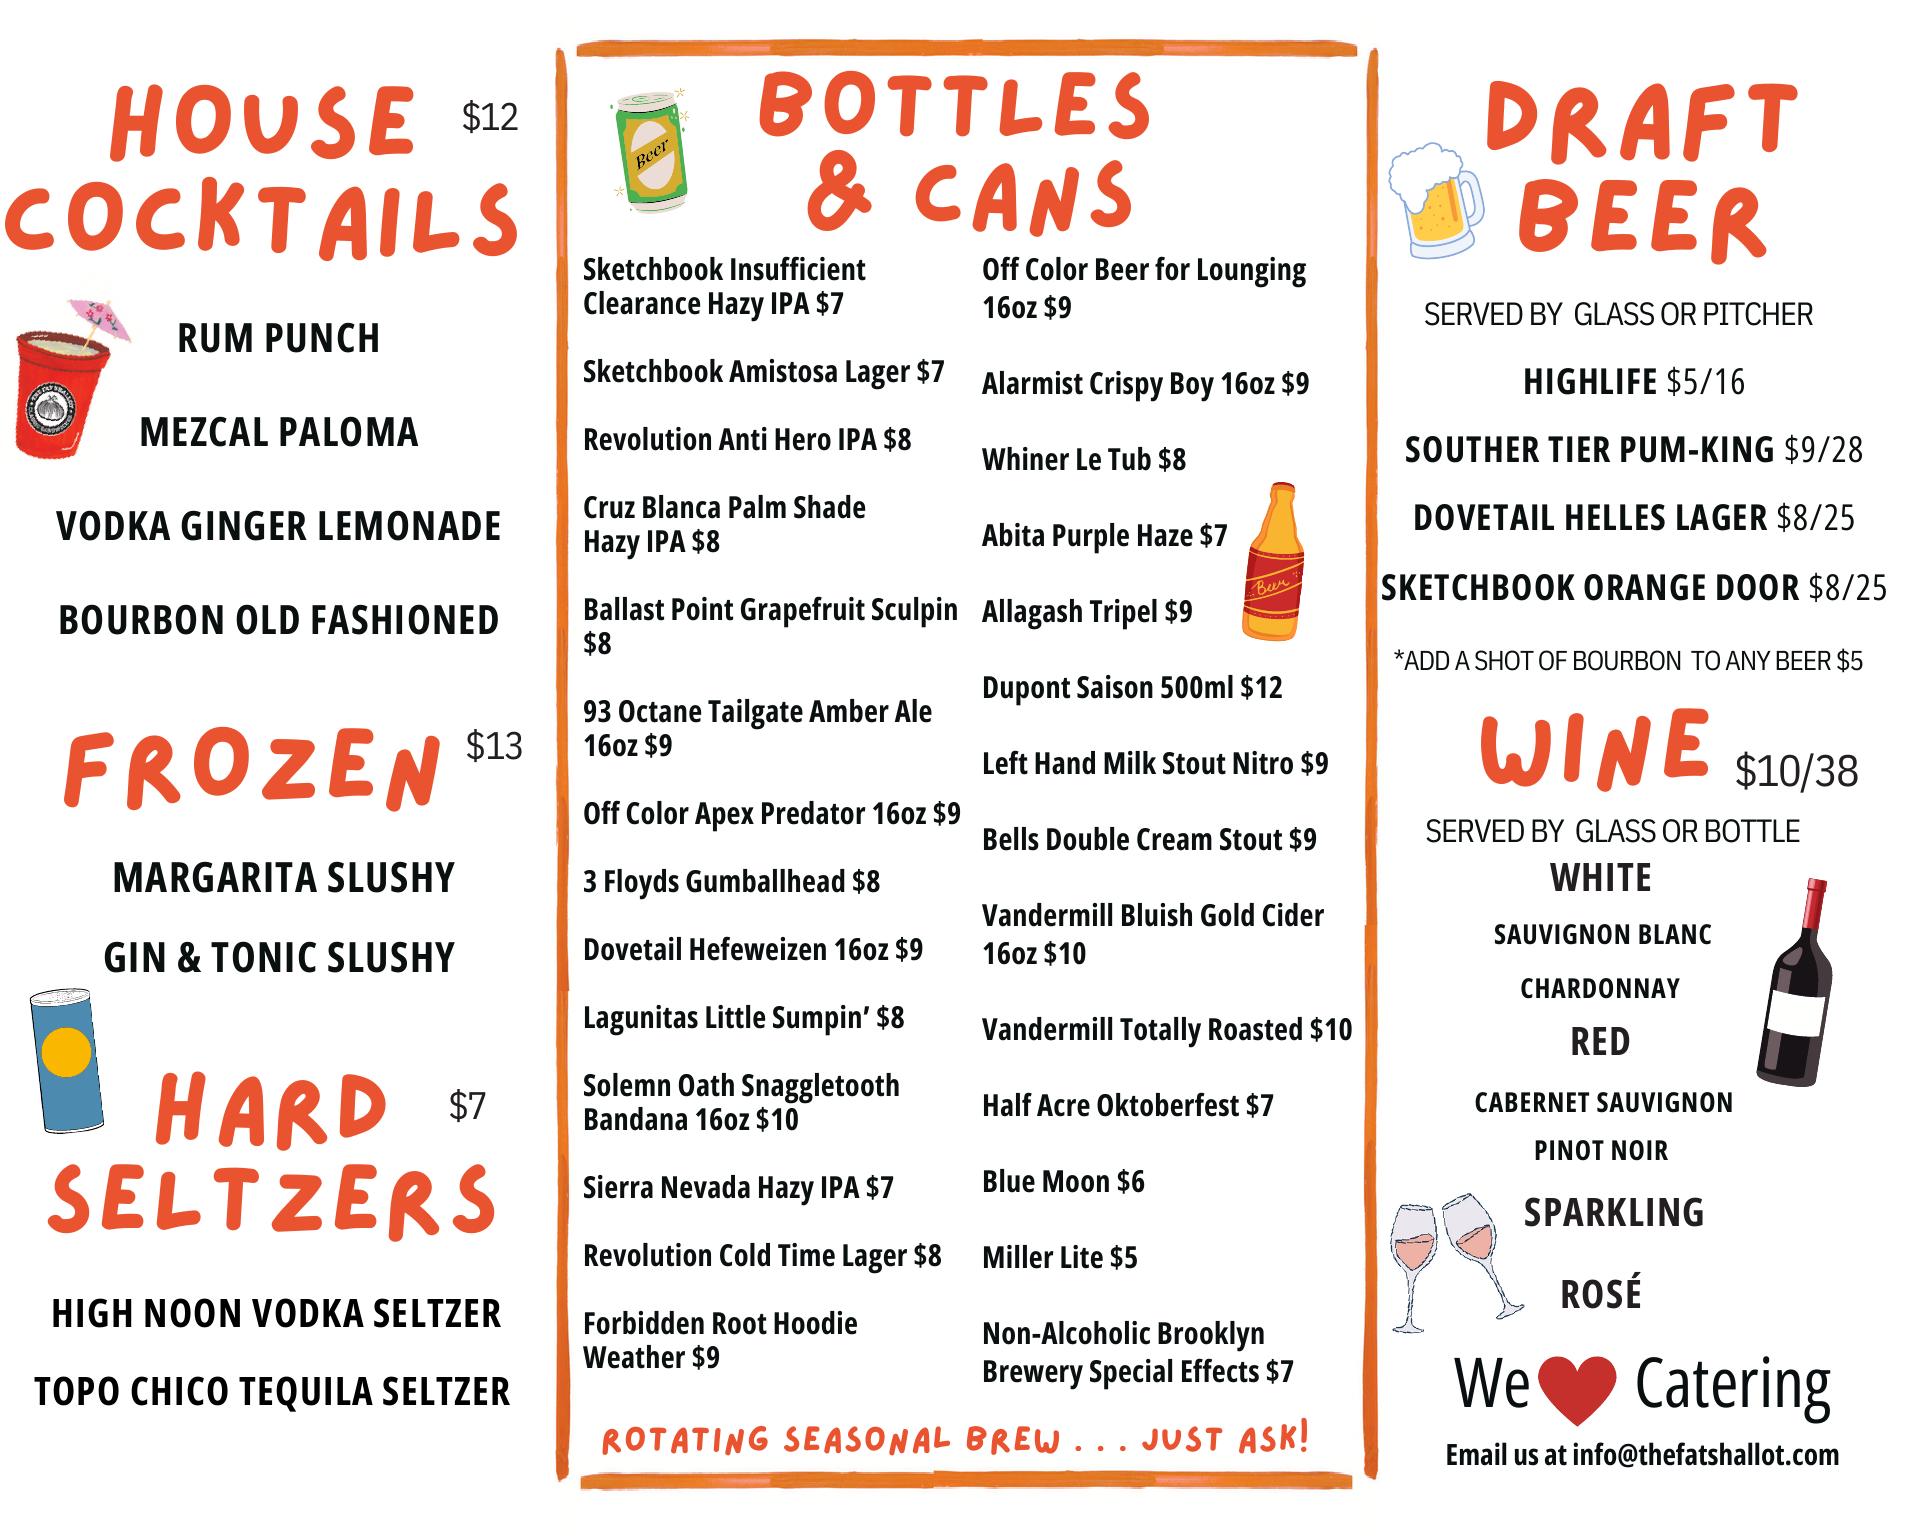 HOUSE $12
COCKTAILS
RUM PUNCH
MEZCAL PALOMA
VODKA GINGER LEMONADE
BOURBON OLD FASHIONED
FROZEN $13
MARGARITA SLUSHY
GIN & TONIC SLUSHY
HARD $7
SELTZERS
HIGH NOON VODKA SELTZER
TOPO CHICO TEQUILA SELTZER
Beer
BOTTLES
& CANS
Sketchbook Insufficient
Clearance Hazy IPA $7
Sketchbook Amistosa Lager $7
Revolution Anti Hero IPA $8
Cruz Blanca Palm Shade
Hazy IPA $8
Ballast Point Grapefruit Sculpin
$8
93 Octane Tailgate Amber Ale
16oz $9
Off Color Apex Predator 16oz $9
3 Floyds Gumballhead $8
Dovetail Hefeweizen 16oz $9
Lagunitas Little Sumpin’ $8
Solemn Oath Snaggletooth
Bandana 16oz $10
Sierra Nevada Hazy IPA $7
Revolution Cold Time Lager $8
Forbidden Root Hoodie
Weather $9
Off Color Beer for Lounging
16oz $9
Alarmist Crispy Boy 16oz $9
Whiner Le Tub $8
Abita Purple Haze $7
Beer
Allagash Tripel $9
Dupont Saison 500ml $12
Left Hand Milk Stout Nitro $9
Bells Double Cream Stout $9
Vandermill Bluish Gold Cider
16oz $10
Vandermill Totally Roasted $10
Half Acre Oktoberfest $7
Blue Moon $6
Miller Lite $5
Non-Alcoholic Brooklyn
Brewery Special Effects $7
ROTATING SEASONAL BREW . . . JUST ASK!
DRAFT
BEER
SERVED BY GLASS OR PITCHER
HIGHLIFE $5/16
SOUTHER TIER PUM-KING $9/28
DOVETAIL HELLES LAGER $8/25
SKETCHBOOK ORANGE DOOR $8/25
*ADD A SHOT OF BOURBON TO ANY BEER $5
WINE $10/38
SERVED BY GLASS OR BOTTLE
WHITE
SAUVIGNON BLANC
CHARDONNAY
RED
CABERNET SAUVIGNON
PINOT NOIR
SPARKLING
ROSÉ
We Catering
Email us at info@thefatshallot.com